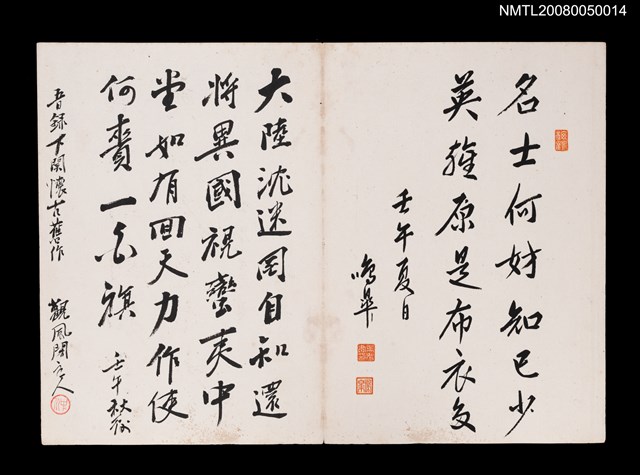 NMTL20080050014
名士何妨知己少
英雄原是布衣多
壬午夏日
鳴皋
大陸沈迷罔自知還
將異國視蠻夷中
堂如有回天力作使
何賚一白旗
壬午秋
錄下關懷古舊作
觀風閣主人